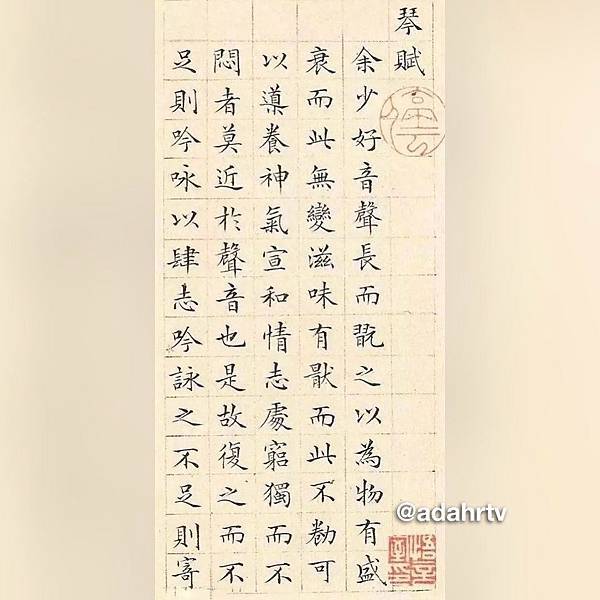 琴賦
余少好音聲長而翫之以為物有盛
衰而此無變滋味有猒而此不勌可
以導養神氣宣和情志處窮獨而不
悶者莫近於聲音也是故復之而不
足則吟咏以肆志吟詠之不足則寄
@adahrtv